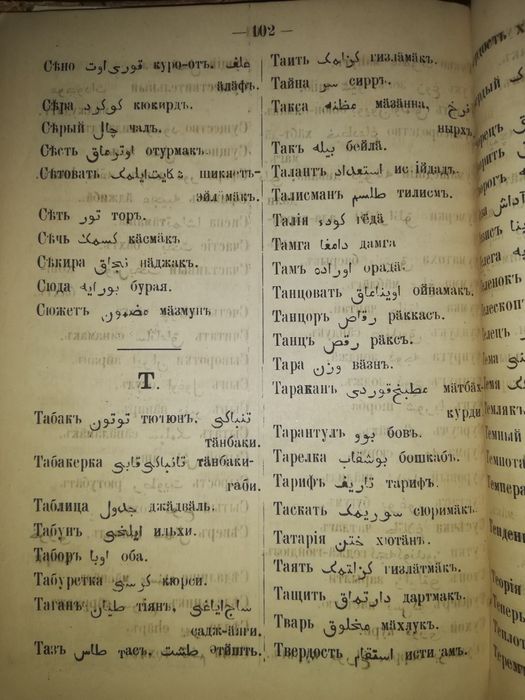 — 102 —
Сѣно قوری اوت куро-отъ. علف
äläфъ.
Сѣра کوکرد кюкирдъ.
Сѣрый چال чалъ.
Сѣсть اوتورماق отурмакъ.
Сѣтовать شکایت ایلمك шикаетъ-
эйлämäкъ.
Сѣть تور торъ.
Сѣчь کسمك кäсмäкъ.
Сѣкира نجاق näджакъ.
Сюда بورایه бурая.
Сюжетъ مضمون мäзмунъ
Т.
Табакъ توتون тютюнъ. تنباکی
тäнбаки.
Табакерка تانباکی قابی тäнбаки-
габи.
Таблица جدول джäдвäль.
Табунъ ایلخی ильхи.
Таборъ اوبا оба.
Табуретка کرسی кюрси.
Таганъ طیان тіянъ. ساج‌ایاغی
садж-аяги.
Тазъ طاس тасъ. طشت
Таить کزلمك гизлämäкъ.
Тайна سر сирръ.
Такса مظنه мäзäнна, نرخ
нырхъ.
Такъ بیله бейлä.
Талантъ استعداد
Талисманъ طلسم тилисмъ.
Талія کوده гёдä
Тамга دامغا дамга
Тамъ اوراده орадä.
Танцовать اویناماق ойнамакъ.
Танцоръ رقاص рäккасъ.
Танцъ رقص рäксъ.
Тара وزن вäзнъ.
Тараканъ مطبخ قوردی мäтбäх-
курди
Тарантулъ بوو бовъ.
Тарелка بوشقاب бошкабъ.
Тарифъ تاریف тарифъ.
Таскать سوریمك сюримäкъ.
Татарія ختن хютäнъ.
Таять کزلتمك гизлäтмäкъ.
Тащить دارتماق дартмакъ.
Тварь مخلوق мäхлукъ.
Твердость استقام